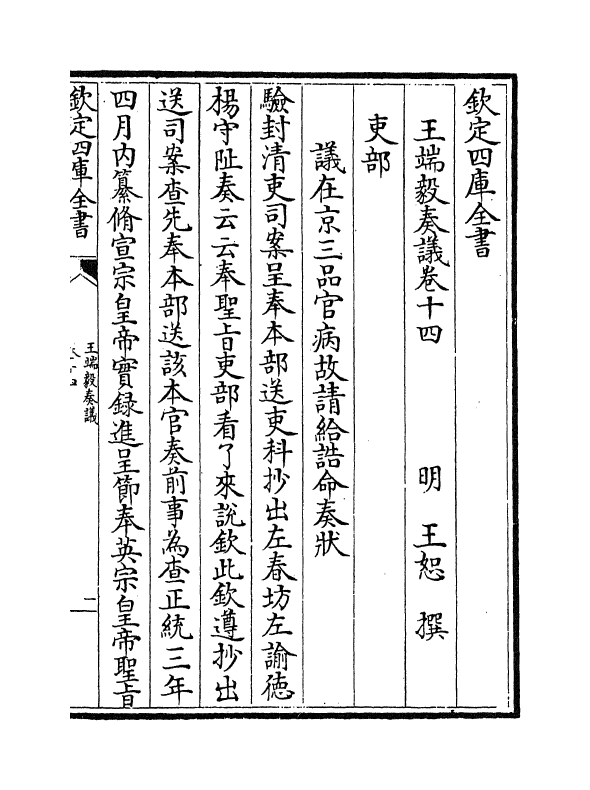 欽定四庫全書
王端毅奏議卷十四　明　王恕　撰
吏部
議在京三品官病故請給誥命奏狀
驗封清吏司案呈奉本部送吏科抄出左春坊左諭徳
楊守阯奏云云奉聖旨吏部看了來說欽此欽遵抄出
送司案查先奉本部送該本官奏前事為查正統三年
四月内纂脩宣宗皇帝實録進呈節奉英宗皇帝聖旨
欽定四庫全書
王端毅奏議
卷十四
二